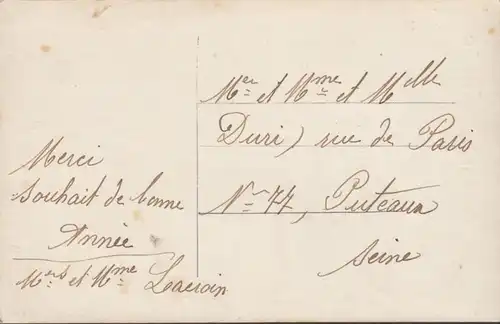 Merci
souhait de bonne
Année
Mers et Mme Lacroin
Mer et Mme et Mlle
Duri) rue de Paris
No 77, Puteaux
Seine